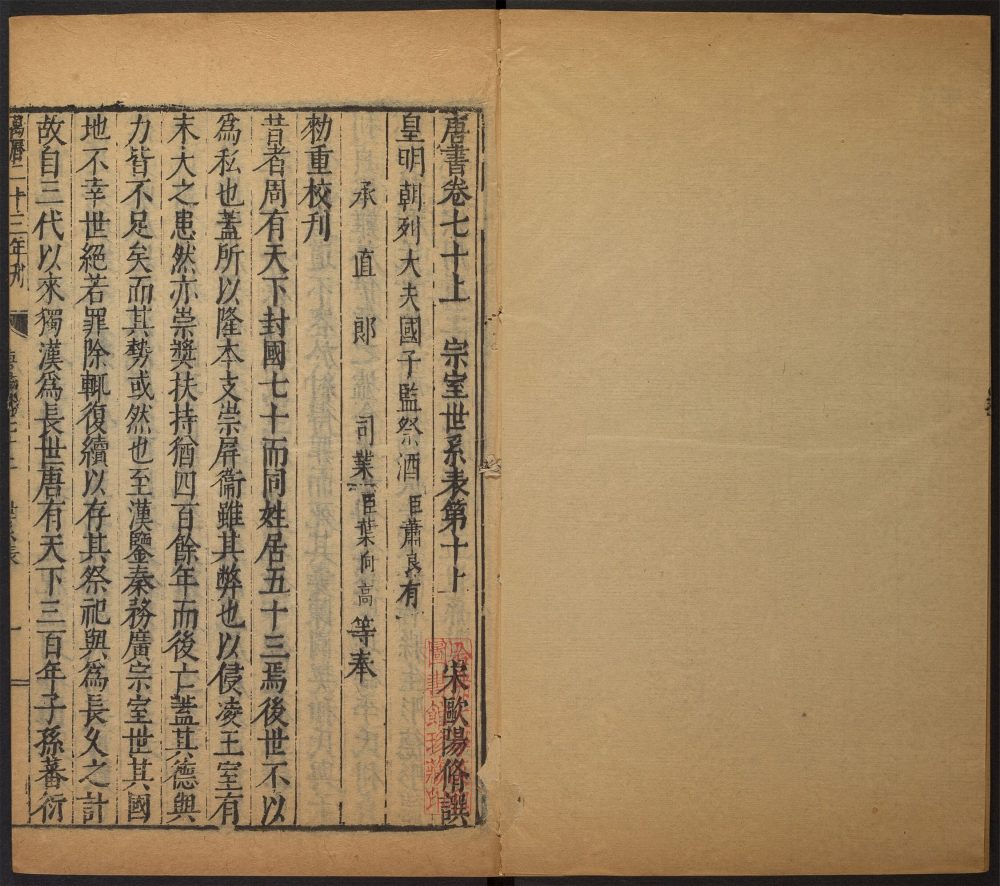 唐書卷七十上 宗室世系表第十上 宋歐陽脩譔
皇明朝列大夫國子監祭酒臣蕭良有
承直郎司業臣葉向高等奉
勑重校刋
昔者周有天下封國七十而同姓居五十三焉後世不以
為私也蓋所以隆本支崇屏衞雖其弊也以侵凌王室有
末大之患然亦崇奬扶持猶四百餘年而後亡蓋其德與
力皆不足矣而其勢或然也至漢鑒秦務廣宗室世其國
地不幸世絕若罪除輒復續以存其祭祀與為長久之計
故自三代以來獨漢為長世唐有天下三百年子孫蕃衍
萬曆二十三年刋
圖書館珍藏印